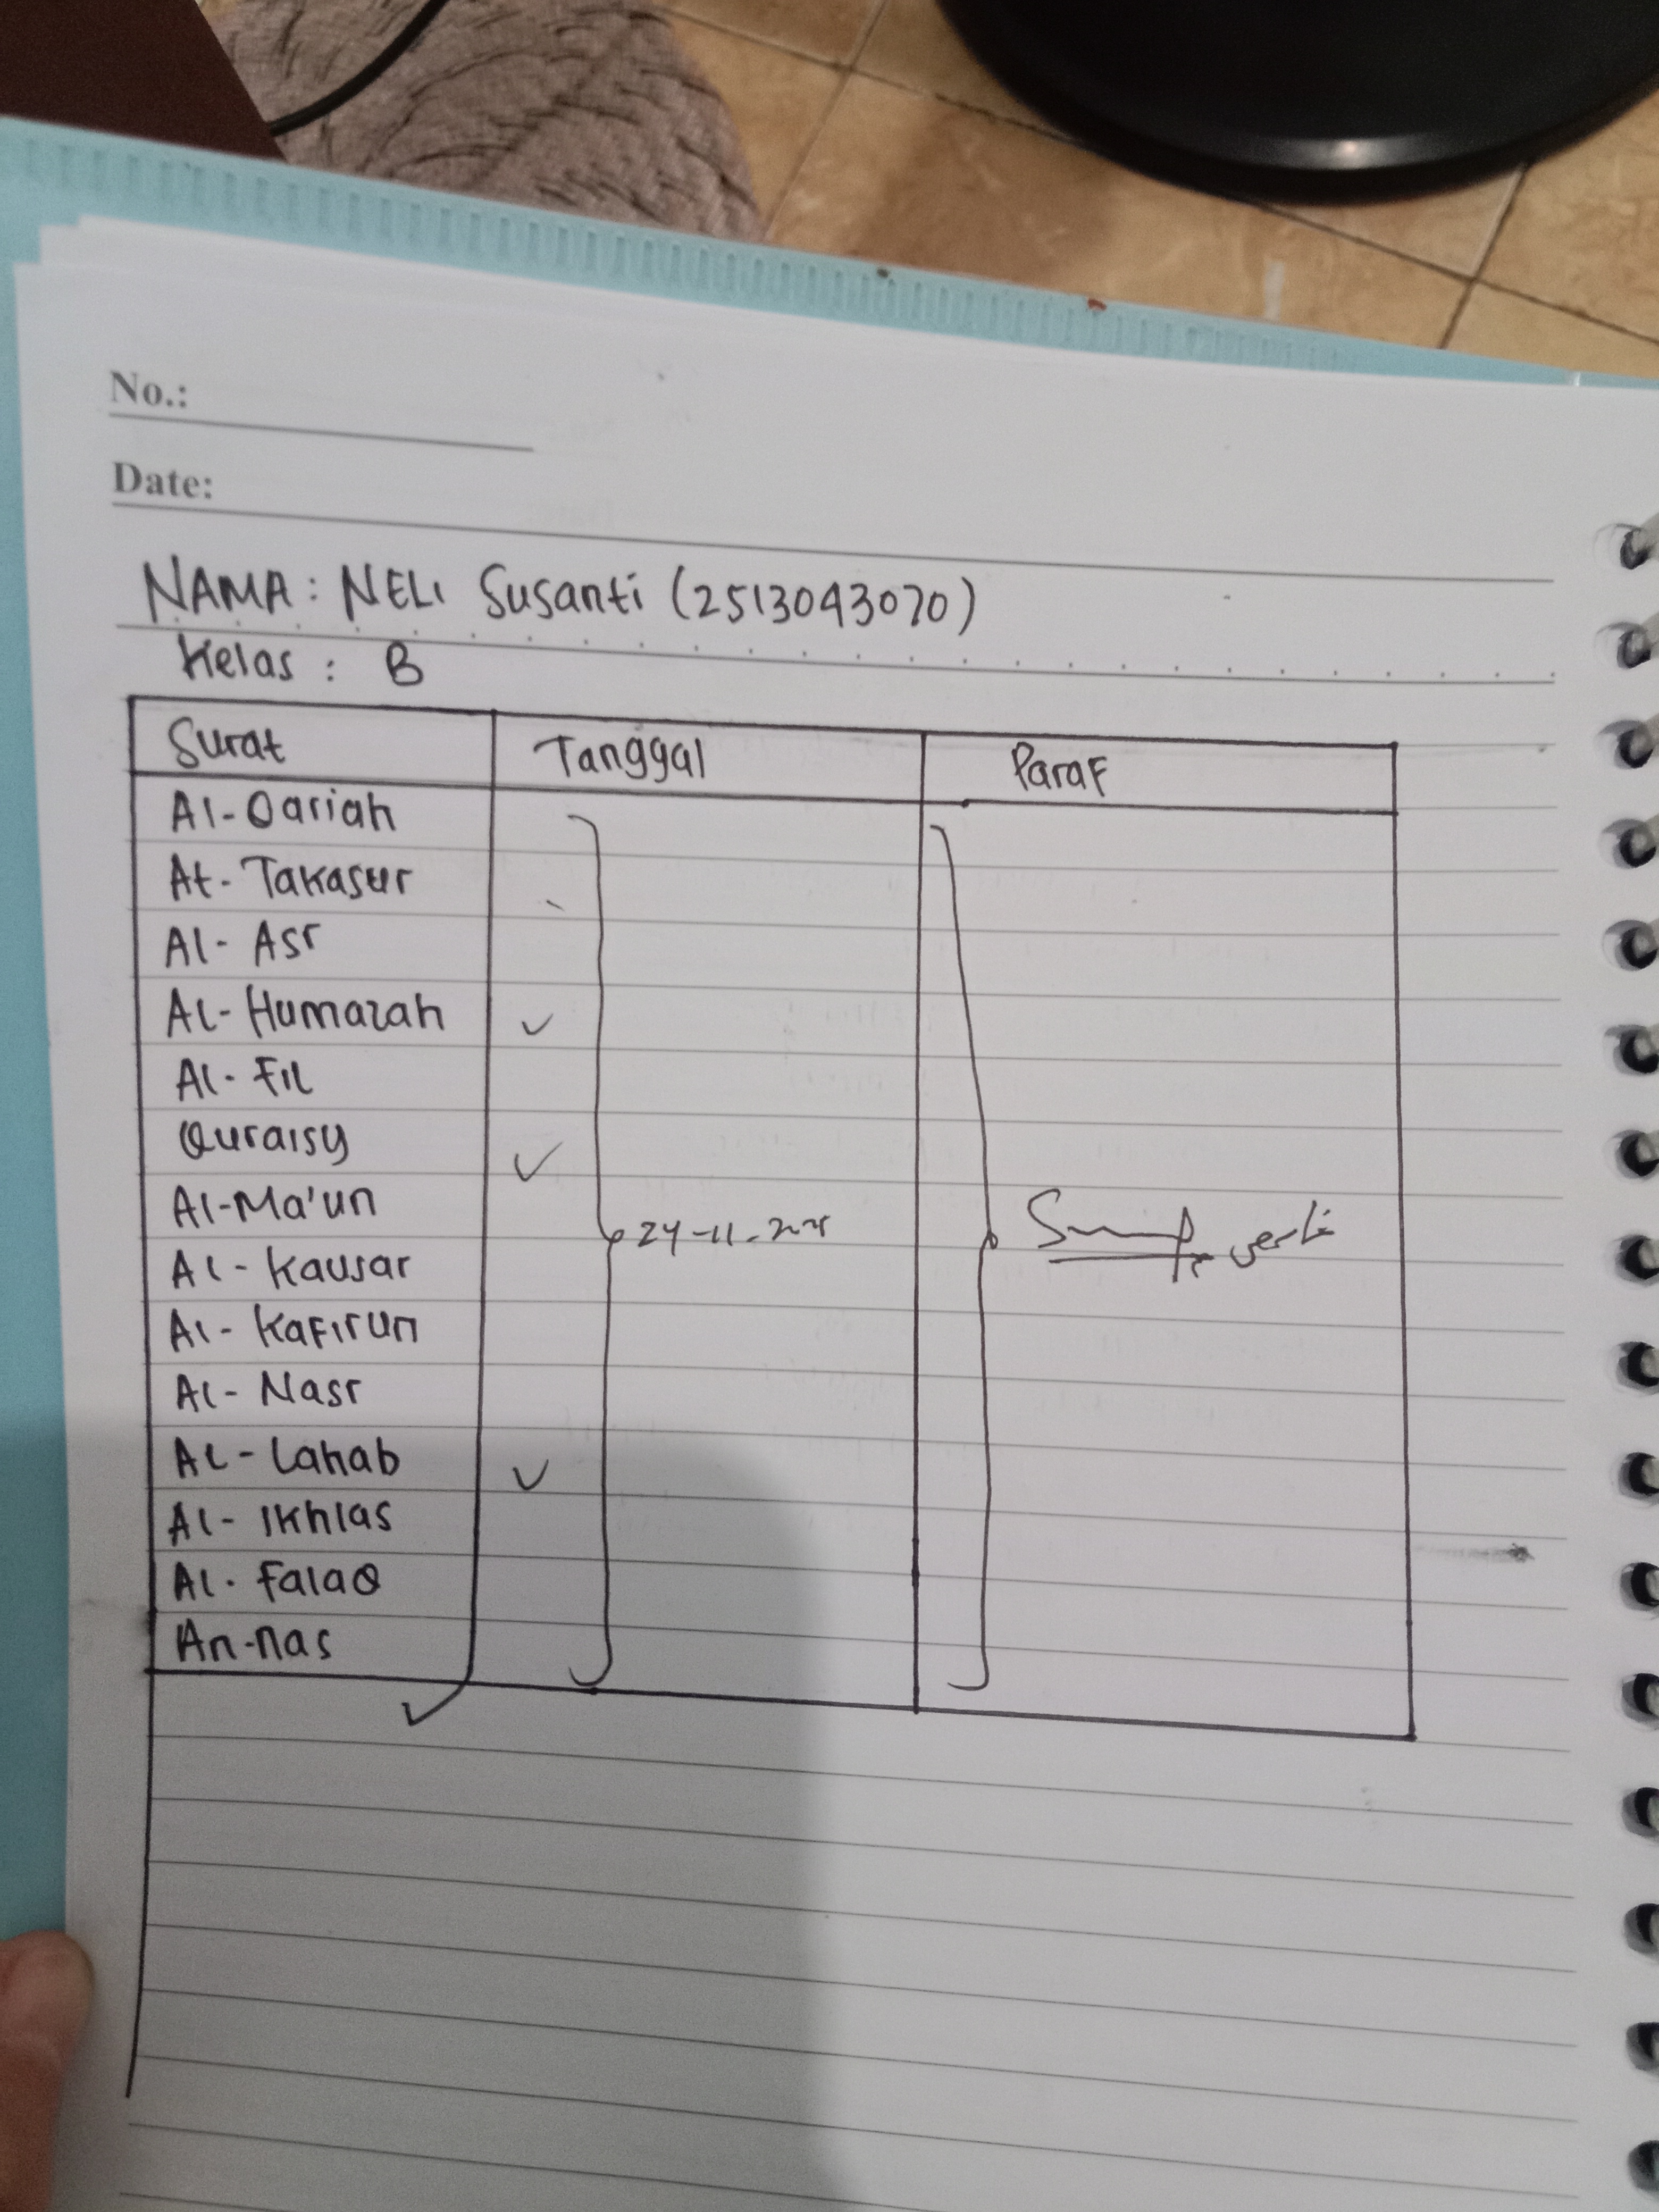 No.:
Date:
NAMA: NELI Susanti (2513043070)
Kelas : B
Surat Tanggal Paraf
Al-Qariah
At-Takasur
Al-Asr
Al-Humazah
Al-Fil
Quraisy
Al-Ma'un
Al-Kausar 24-11-
Al-Kafirun
Al-Nasr
Al-Lahab
Al-Ikhlas
Al-Falaq
An-nas